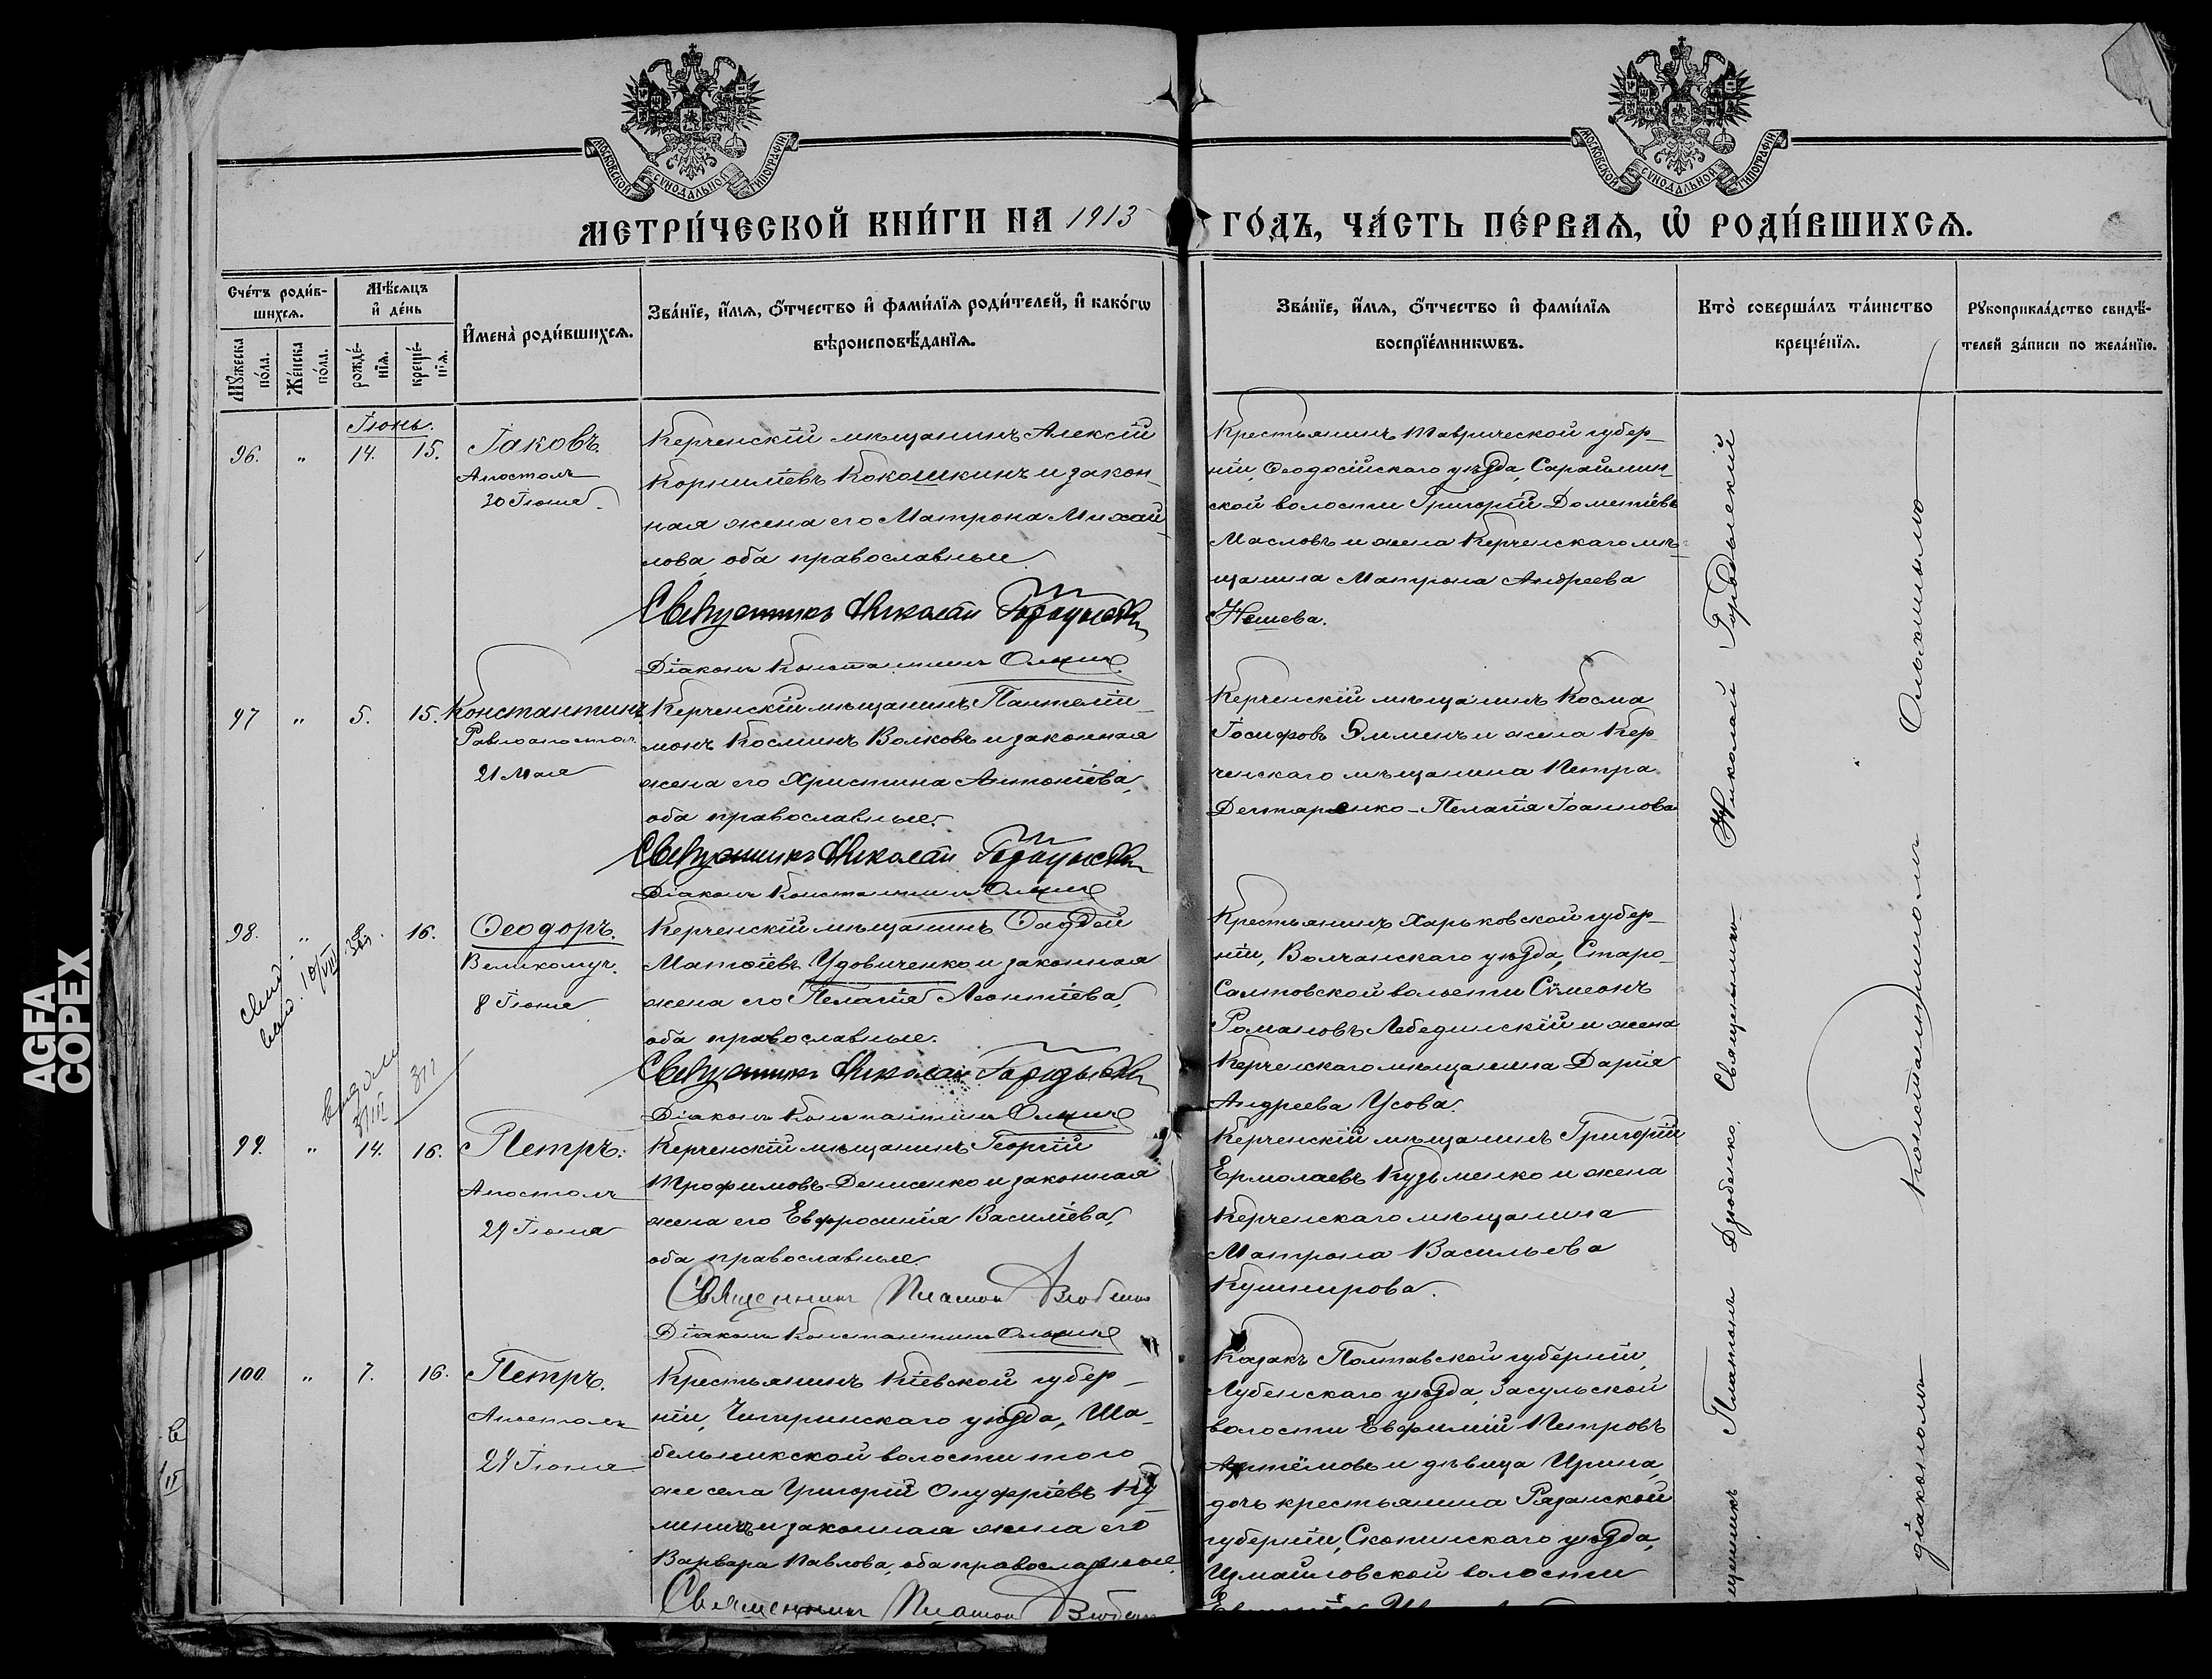 МОСКОВСКОЙ СѴНОДАЛЬНОЙ ТИПОГРАФІИ
МОСКОВСКОЙ СѴНОДАЛЬНОЙ ТИПОГРАФІИ
МЕТРИ́ЧЕСКОЙ КНИ́ГИ НА 1913 ГО́ДЪ, ЧА́СТЬ ПЕ́РВАѦ, Ѡ҆ РОДИ́ВШИХСѦ.
Сче́тъ роди́в-
шихсѧ.
Мꙋ́жеска по́ла.
Же́нска по́ла.
Мѣ́сѧцъ
и҆ де́нь
рожде́-
нїѧ.
креще́-
нїѧ.
И҆мена̀ роди́вшихсѧ.
Зва́нїе, и҆́мѧ, ѻ҆́тчество и҆ фами́лїѧ роди́телей, и҆ како́гѡ
вѣроисповѣ́данїѧ.
Зва́нїе, и҆́мѧ, ѻ҆́тчество и҆ фами́лїѧ
воспрїе́мникѡвъ.
Кто̀ соверша́лъ та́инство
креще́нїѧ.
Рꙋкоприкла́дство свидѣ́-
телей за́писи по жела́нїю.
Іюнь.
96. " 14. 15. Іаковъ.
Апостолъ
30 Іюня.
Керченскій мѣщанинъ Алексій
Корниліевъ Кокошкинъ и закон-
ная жена его Матрона Михаи-
лова, оба православные.
Священникъ Николай
Діаконъ Константинъ
Крестьянинъ Таврической губер-
ніи, Ѳеодосійскаго уѣзда, Сараймин-
ской волости Григорій Дометіевъ
Масловъ и жена Керченскаго мѣ-
щанина Матрона Андреева
97 " 5. 15. Константинъ
Равноапостол.
21 Мая
Керченскій мѣщанинъ Пантелеи-
монъ Косминъ Волковъ и законная
жена его Христина Антоніева,
оба православные.
Священникъ Николай
Діаконъ Константинъ
Керченскій мѣщанинъ Косма
Іосифовъ и жена Кер-
ченскаго мѣщанина Петра
Дегтяренко - Пелагія Іоаннова
98. " 16. Ѳеодоръ.
Великомуч.
8 Іюня
Керченскій мѣщанинъ Ѳаддей
Матѳіевъ Удовиченко и законная
жена его Пелагія Леонтіева,
оба православные.
Священникъ Николай
Діаконъ Константинъ
Крестьянинъ Харьковской губер-
ніи, Волчанскаго уѣзда, Старо-
Салтовской волости Сѵмеонъ
Романовъ Лебединскій и жена
Керченскаго мѣщанина Дарія
Андреева Усова.
99. " 14. 16. Петръ.
Апостолъ
29 Іюня
Керченскій мѣщанинъ Георгій
Трофимовъ Денисенко и законная
жена его Евфросинія Василіева,
оба православные.
Священникъ Платонъ
Діаконъ Константинъ
Керченскій мѣщанинъ Григорій
Ермолаевъ Кузьменко и жена
Керченскаго мѣщанина
Матрона Васильева
Кушнирова.
100. " 7. 16. Петръ.
Апостолъ
29 Іюня
Крестьянинъ Кіевской губер-
ніи, Чигиринскаго уѣзда, Ша-
бельникской волости того
же села Григорій Онуфріевъ
и законная жена его
Варвара Павлова, оба православные.
Священникъ Платонъ
Казакъ Полтавской губерніи,
Лубенскаго уѣзда, Засульской
волости Евфимій Петровъ
Артёмовъ и дѣвица Ирина,
дочь крестьянина Рязанской
губерніи, Скопинскаго уѣзда,
Измаиловской волости
Платонъ Дзюбенко. Священникъ Николай
діакономъ Константиномъ
AGFA
COPEX